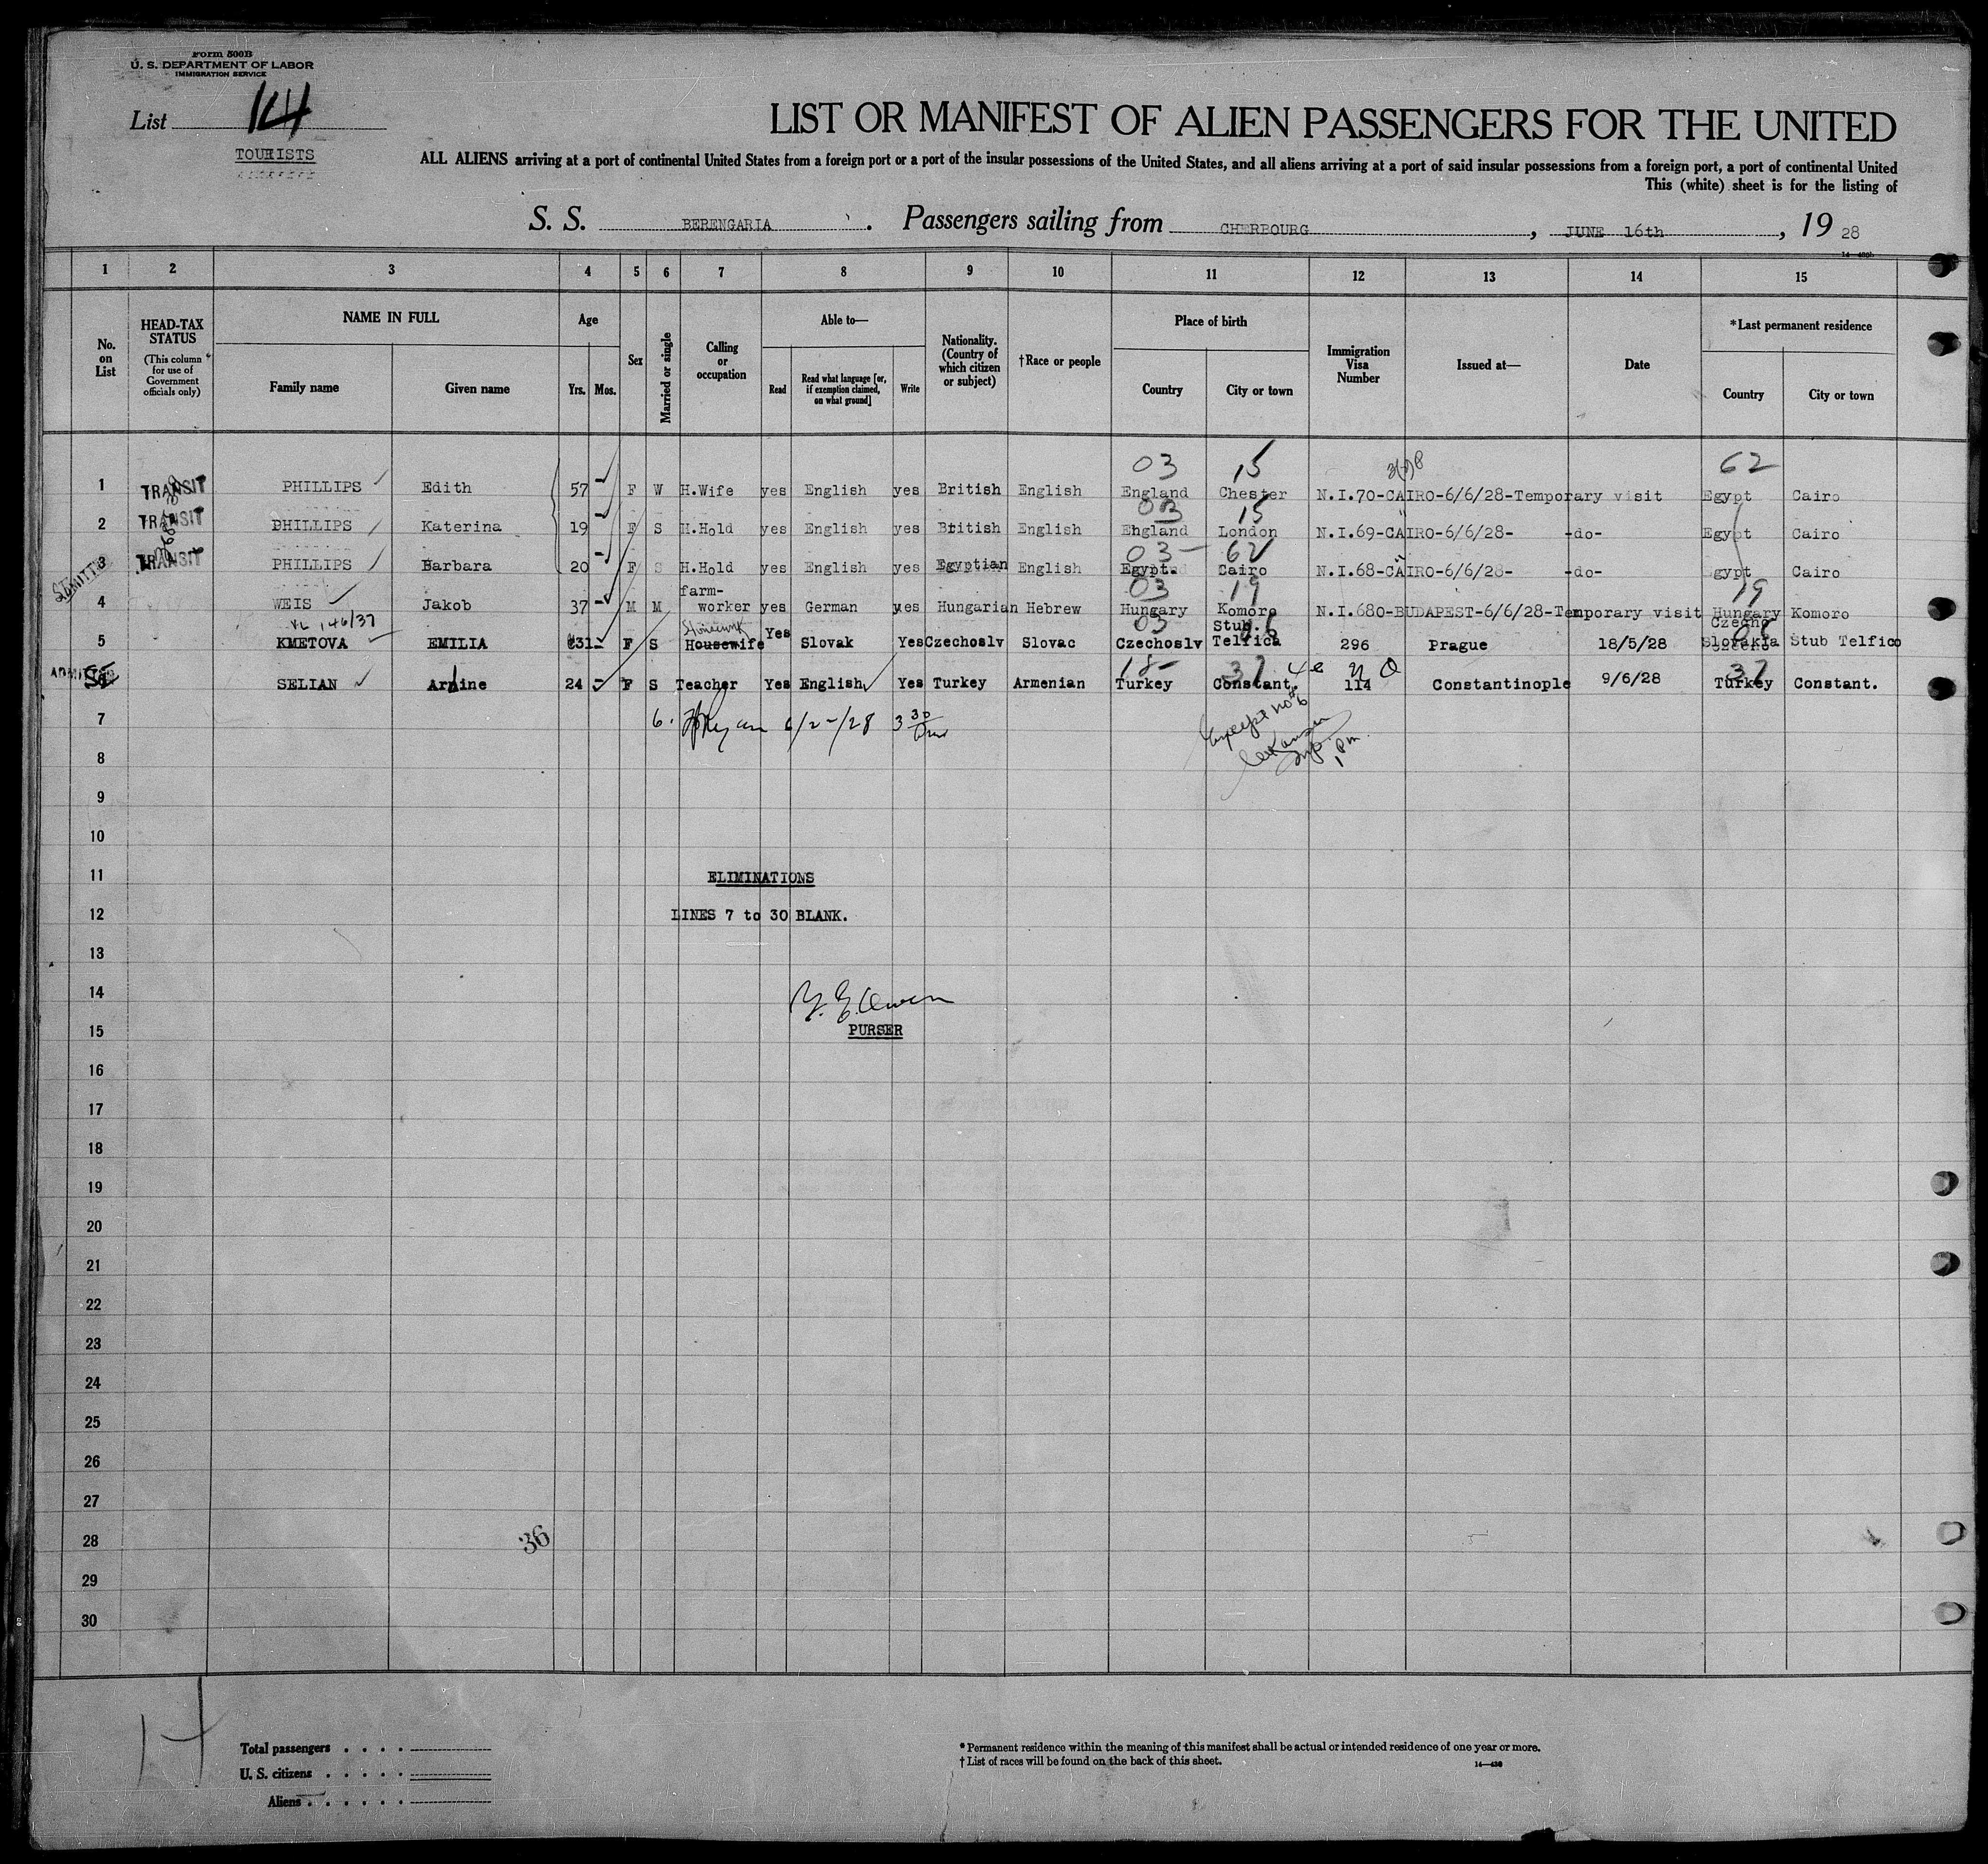 Form 500B
U. S. DEPARTMENT OF LABOR
IMMIGRATION SERVICE
List 14
TOURISTS
LIST OR MANIFEST OF ALIEN PASSENGERS FOR THE UNITED
ALL ALIENS arriving at a port of continental United States from a foreign port or a port of the insular possessions of the United States, and all aliens arriving at a port of said insular possessions from a foreign port, a port of continental United
This (white) sheet is for the listing of
S. S. BERENGARIA . Passengers sailing from CHERBOURG , JUNE 16th , 19 28
1 2 3 4 5 6 7 8 9 10 11 12 13 14 15
No. on List
HEAD-TAX STATUS (This column for use of Government officials only)
NAME IN FULL
Family name Given name
Age
Yrs. Mos.
Sex
Married or single
Calling or occupation
Able to—
Read Read what language [or, if exemption claimed, on what ground] Write
Nationality. (Country of which citizen or subject)
†Race or people
Place of birth
Country City or town
Immigration Visa Number
Issued at—
Date
*Last permanent residence
Country City or town
03 15 62
1 TRANSIT PHILLIPS Edith 57 F W H.Wife yes English yes British English England Chester N.I.70-CAIRO-6/6/28-Temporary visit Egypt Cairo
03 15
2 TRANSIT PHILLIPS Katerina 19 F S H.Hold yes English yes British English England London N.I.69-CAIRO-6/6/28- -do- Egypt Cairo
03 62
3 TRANSIT PHILLIPS Barbara 20 F S H.Hold yes English yes Egyptian English Egypt. Cairo N.I.68-CAIRO-6/6/28- -do- Egypt Cairo
03 19 19
4 WEIS Jakob 37 M M farm-worker yes German yes Hungarian Hebrew Hungary Komoro N.I.680-BUDAPEST-6/6/28-Temporary visit Hungary Komoro
VL 146/37
03
5 KMETOVA EMILIA 31 F S Housewife Yes Slovak Yes Czechoslv Slovac Czechoslv Stub. Telfica 296 Prague 18/5/28 Czecho Slovakia Stub Telfico
ADMITTED
37 37
SELIAN Armine 24 F S Teacher Yes English Yes Turkey Armenian Turkey Constant. 114 Constantinople 9/6/28 Turkey Constant.
7 6. 3 30
Except no 6
1 Pm.
8
9
10
11 ELIMINATIONS
12 LINES 7 to 30 BLANK.
13
14
15 PURSER
16
17
18
19
20
21
22
23
24
25
26
27
28 36
29
30
Total passengers
U. S. citizens
Aliens
* Permanent residence within the meaning of this manifest shall be actual or intended residence of one year or more.
† List of races will be found on the back of this sheet.